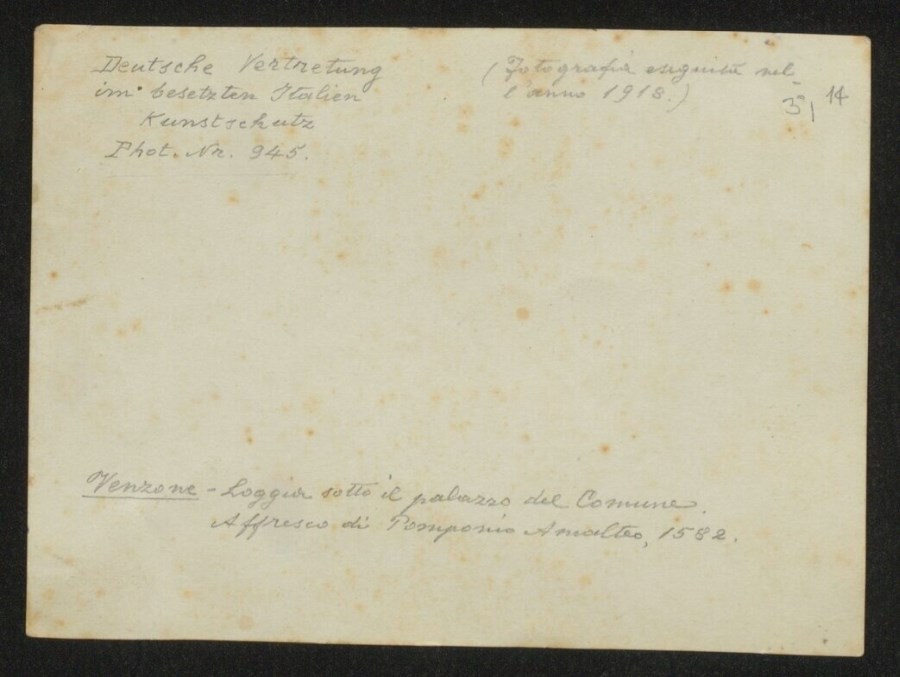 Deutsche Vertretung
im besetzten Italien
Kunstschutz
Phot. Nr. 945.
(Fotografia eseguita nel
l'anno 1918.)
14
Venzone - Loggia sotto il palazzo del Comune.
Affresco di Pomponio Amalteo, 1582.